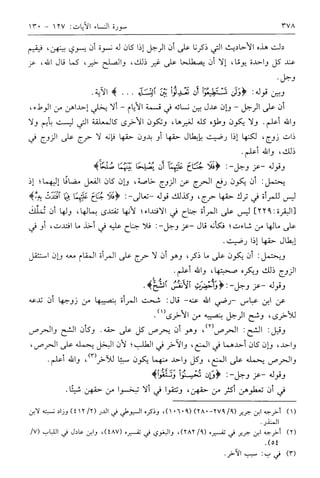 ٣٧٨ سورة النساء الآيات: ١٢٧ - ١٣٠
دلت هذه الأحاديث التي ذكرنا على أن الرجل إذا كان له نسوة أن يسوي بينهن، فيقيم
عند كل واحدة يومًا، إلا أن يصطلحا على غير ذلك، والصلح خير، كما قال الله، عز
وجل.
وبين قوله: ﴿وَلَن تَسْتَطِيعُوٓا۟ أَن تَعْدِلُوا۟ بَيْنَ ٱلنِّسَآءِ ... ﴾ الآية.
أن على الرجل - وإن عدل بين نسائه في قسمة الأيام - ألا يخلي إحداهن من الوطء،
والله أعلم. ولا يكون وطؤه كله لغيرها، وتكون الأخرى كالمعلقة التي ليست بأيم ولا
ذات زوج، لكنها إذا رضيت بإبطال حقها أو بدون حقها فإنه لا حرج على الزوج في
ذلك، والله أعلم.
وقوله -عز وجل-: ﴿فَلَا جُنَاحَ عَلَيْهِمَآ أَن يُصْلِحَا بَيْنَهُمَا صُلْحًا﴾
يحتمل: أن يكون رفع الحرج عن الزوج خاصة، وإن كان الفعل مضافًا إليهما؛ إذ
ليس للمرأة في ترك حقها حرج، وكذلك قوله -تعالى-: ﴿فَلَا جُنَاحَ عَلَيْهِمَا فِيمَا ٱفْتَدَتْ بِهِۦ﴾
[البقرة: ٢٢٩] ليس على المرأة جناح في الافتداء؛ لأنها تفتدي بمالها، ولها أن تُمَلِّكَ
على مالها من شاءت؛ فكأنه قال -عز وجل-: فلا جناح عليه في أخذ ما افتدت، أو في
إبطال حقها إذا رضيت.
ويحتمل: أن يكون على ما ذكر، وهو أن لا حرج على المرأة المقام معه وإن استقل
الزوج ذلك ويكره صحبتها، والله أعلم.
وقوله -عز وجل-: ﴿وَأُحْضِرَتِ ٱلْأَنفُسُ ٱلشُّحَّ﴾.
عن ابن عباس -رضي الله عنه- قال: شحت المرأة بنصيبها من زوجها أن تدعه
للأخرى، وشح الرجل بنصيبه من الأخرى(١).
وقيل: الشح: الحرص(٢)، وهو أن يحرص كل على حقه. وكأن الشح والحرص
واحد، وإن كان أحدهما في المنع، والآخر في الطلب؛ لأن البخل يحمله على الحرص،
والحرص يحمله على المنع، وكل واحد منهما يكون سببًا للآخر(٣)، والله أعلم.
وقوله -عز وجل-: ﴿وَإِن تُحْسِنُوا۟ وَتَتَّقُوا۟﴾
في أن تعطوهن أكثر من حقهن، وتتقوا في ألا تبخسوا من حقهن شيئًا.
(١) أخرجه ابن جرير (٩/ ٢٧٩-٢٨٠) (١٠٦٠٩)، وذكره السيوطي في الدر (٢/ ٤١٢) وزاد نسبته لابن
المنذر.
(٢) أخرجه ابن جرير في تفسيره (٩/ ٢٨٢)، والبغوي في تفسيره (٤٨٧)، وابن عادل في اللباب (٧/
٥٤).
(٣) في ب: سبب الآخر.